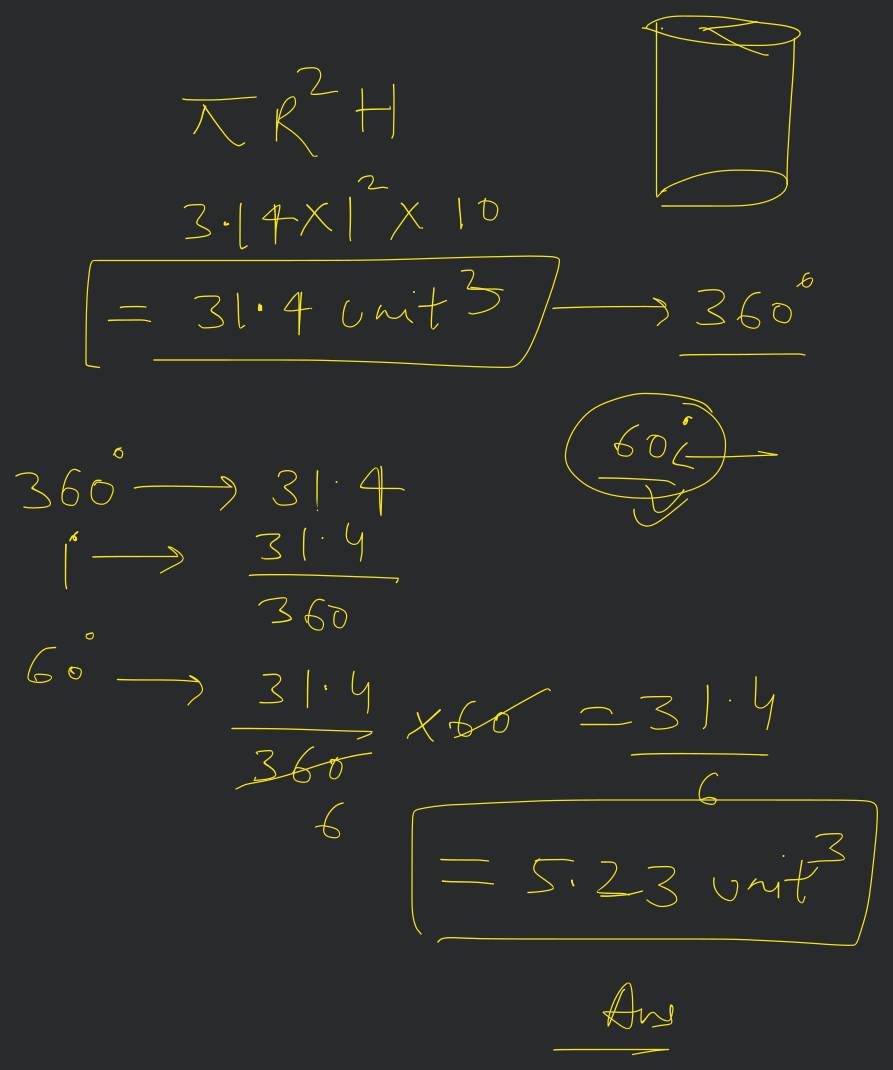 πR²H
3.14×1²×10
= 31.4 unit³ → 360°
60°
360° → 31.4
1° → 31.4/360
60° → 31.4/360 ×60 = 31.4/6
6
= 5.23 unit³
Ans